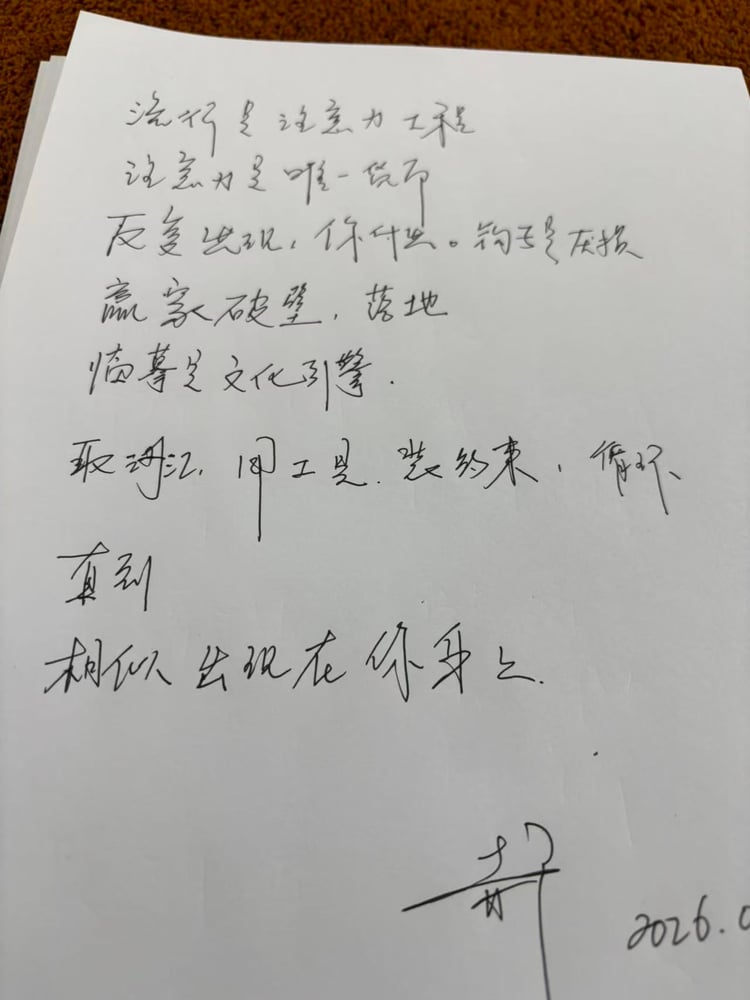 流行是注意力工程
注意力是唯一货币
反复出现,你付出。钩子是厌损
赢家破壁,落地
临摹是文化引擎.
取词汇,用工具.装约束,循环
直到
相似出现在你身上.
2026.0